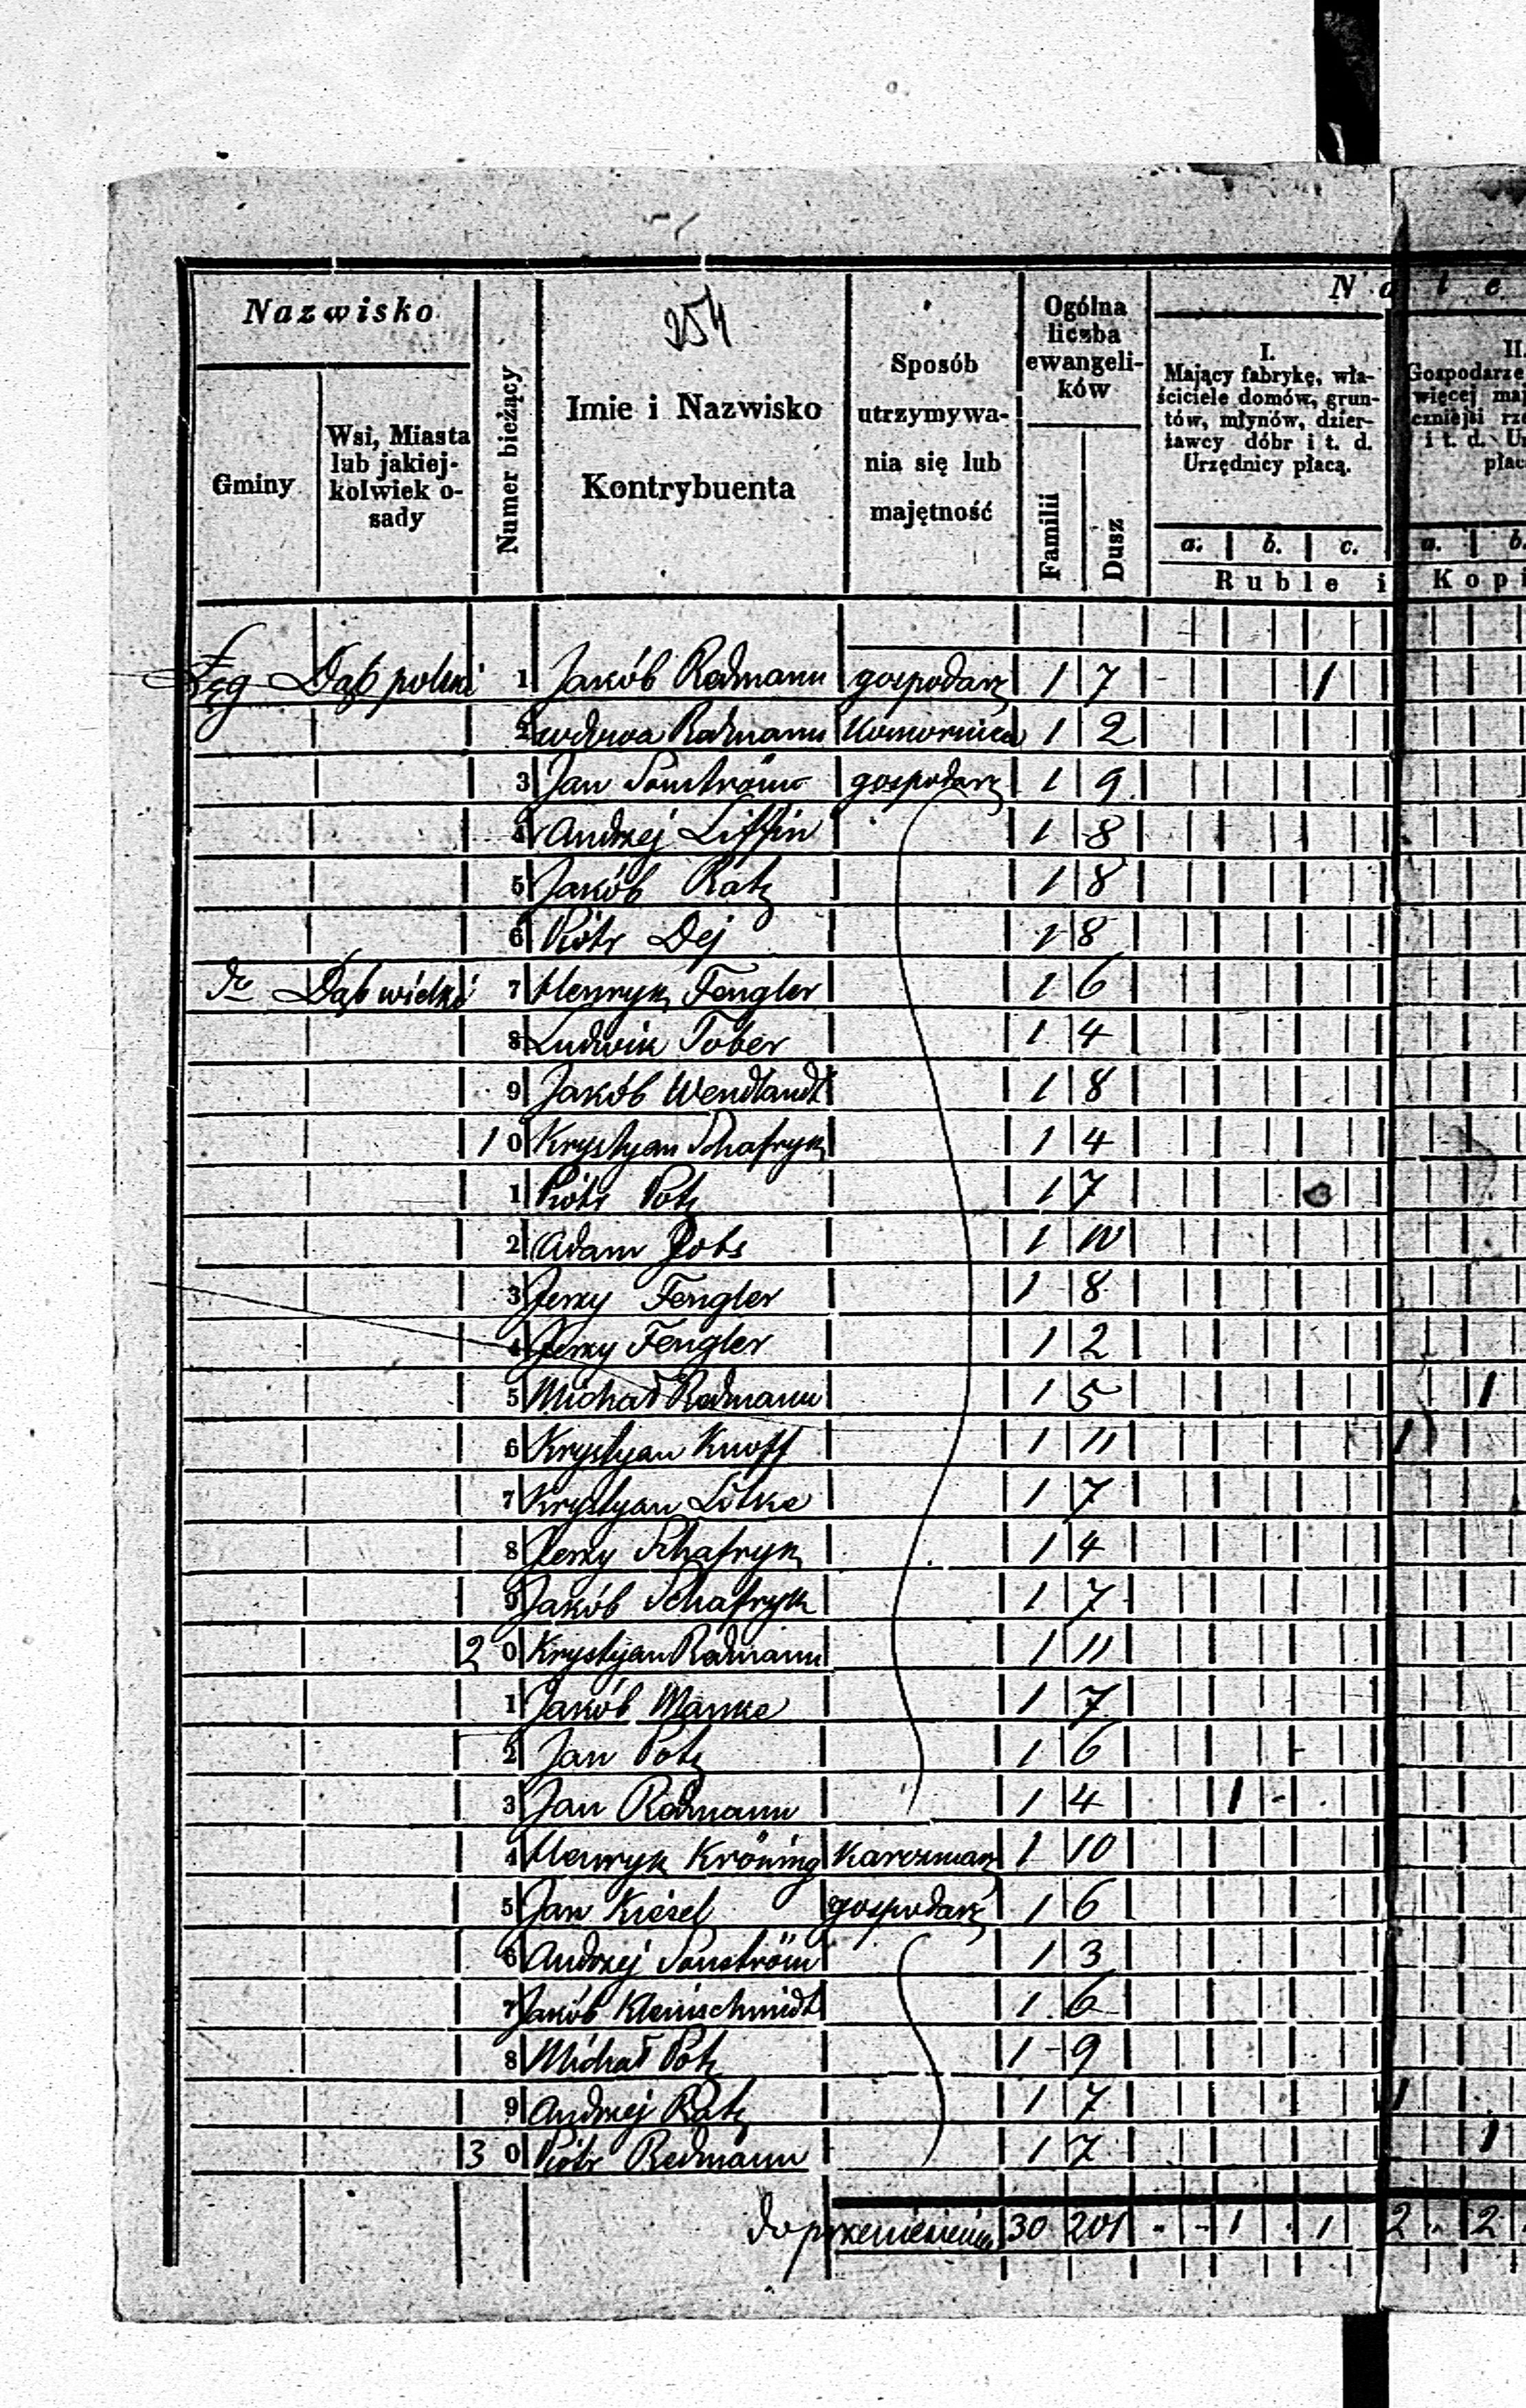 254
Nazwisko
Gminy
Wsi, Miasta lub jakiej-kolwiek o-sady
Numer bieżący
Imie i Nazwisko
Kontrybuenta
Sposób
utrzymywa-
nia się lub
majętność
Ogólna
liczba
ewangeli-
ków
Familii
Dusz
I.
Mający fabrykę, wła-
ściciele domów, grun-
tów, młynów, dzier-
żawcy dóbr i t. d.
Urzędnicy płacą.
a. b. c.
Ruble i
II.
Gospodarze
więcej maj
i t. d. U
płac
a. b.
Kopi
Łęg Dąb polski 1 Jakób Redmann gospodarz 1 7 1
2 wdowa Redmann Komornica 1 2
3 Jan Sonström gospodarz 1 9
4 Andrzej Liffin 1 8
5 Jakób Ratz 1 8
6 Piótr Dej 1 8
do Dąb wielki 7 Henryk Fengler 1 6
8 Ludwik Tober 1 4
9 Jakób Wendlandt 1 8
10 Krystyan Schafryk 1 4
1 Piótr Potz 1 7
2 Adam Pots 1 10
3 Jerzy Fengler 1 8
4 Jerzy Fengler 1 2
5 Michał Redmann 1 5 1
6 Krystyan Knoff 1 11 1
7 Krystyan Litke 1 7
8 Jerzy Schafryk 1 4
9 Jakób Schafryk 1 7
20 Krystyan Redmann 1 11
1 Jakób Manke 1 7
2 Jan Potz 1 6
3 Jan Redmann 1 4 1
4 Henryk Kröning Karczmarz 1 10
5 Jan Kiesel gospodarz 1 6
6 Andrzej Sonström 1 3
7 Jakób Kleinschmidt 1 6
8 Michał Potz 1 9
9 Andrzej Ratz 1 7 1
30 Piótr Redmann 1 7 1
do przeniesienia 30 201 1 1 2 2